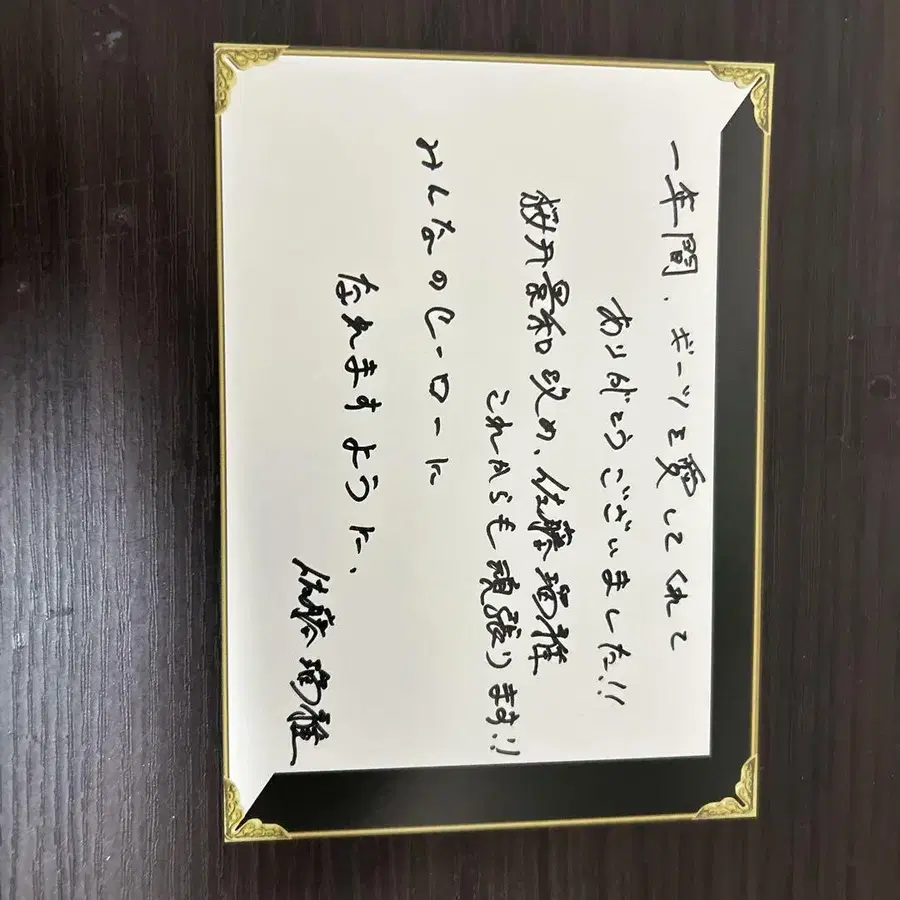 一年間、ギーツを愛してくれて
ありがとうございました!!
桜井景和 改め、佐藤瑠雅
これからも頑張ります!!
みんなのヒーローに
なれますように、
佐藤瑠雅